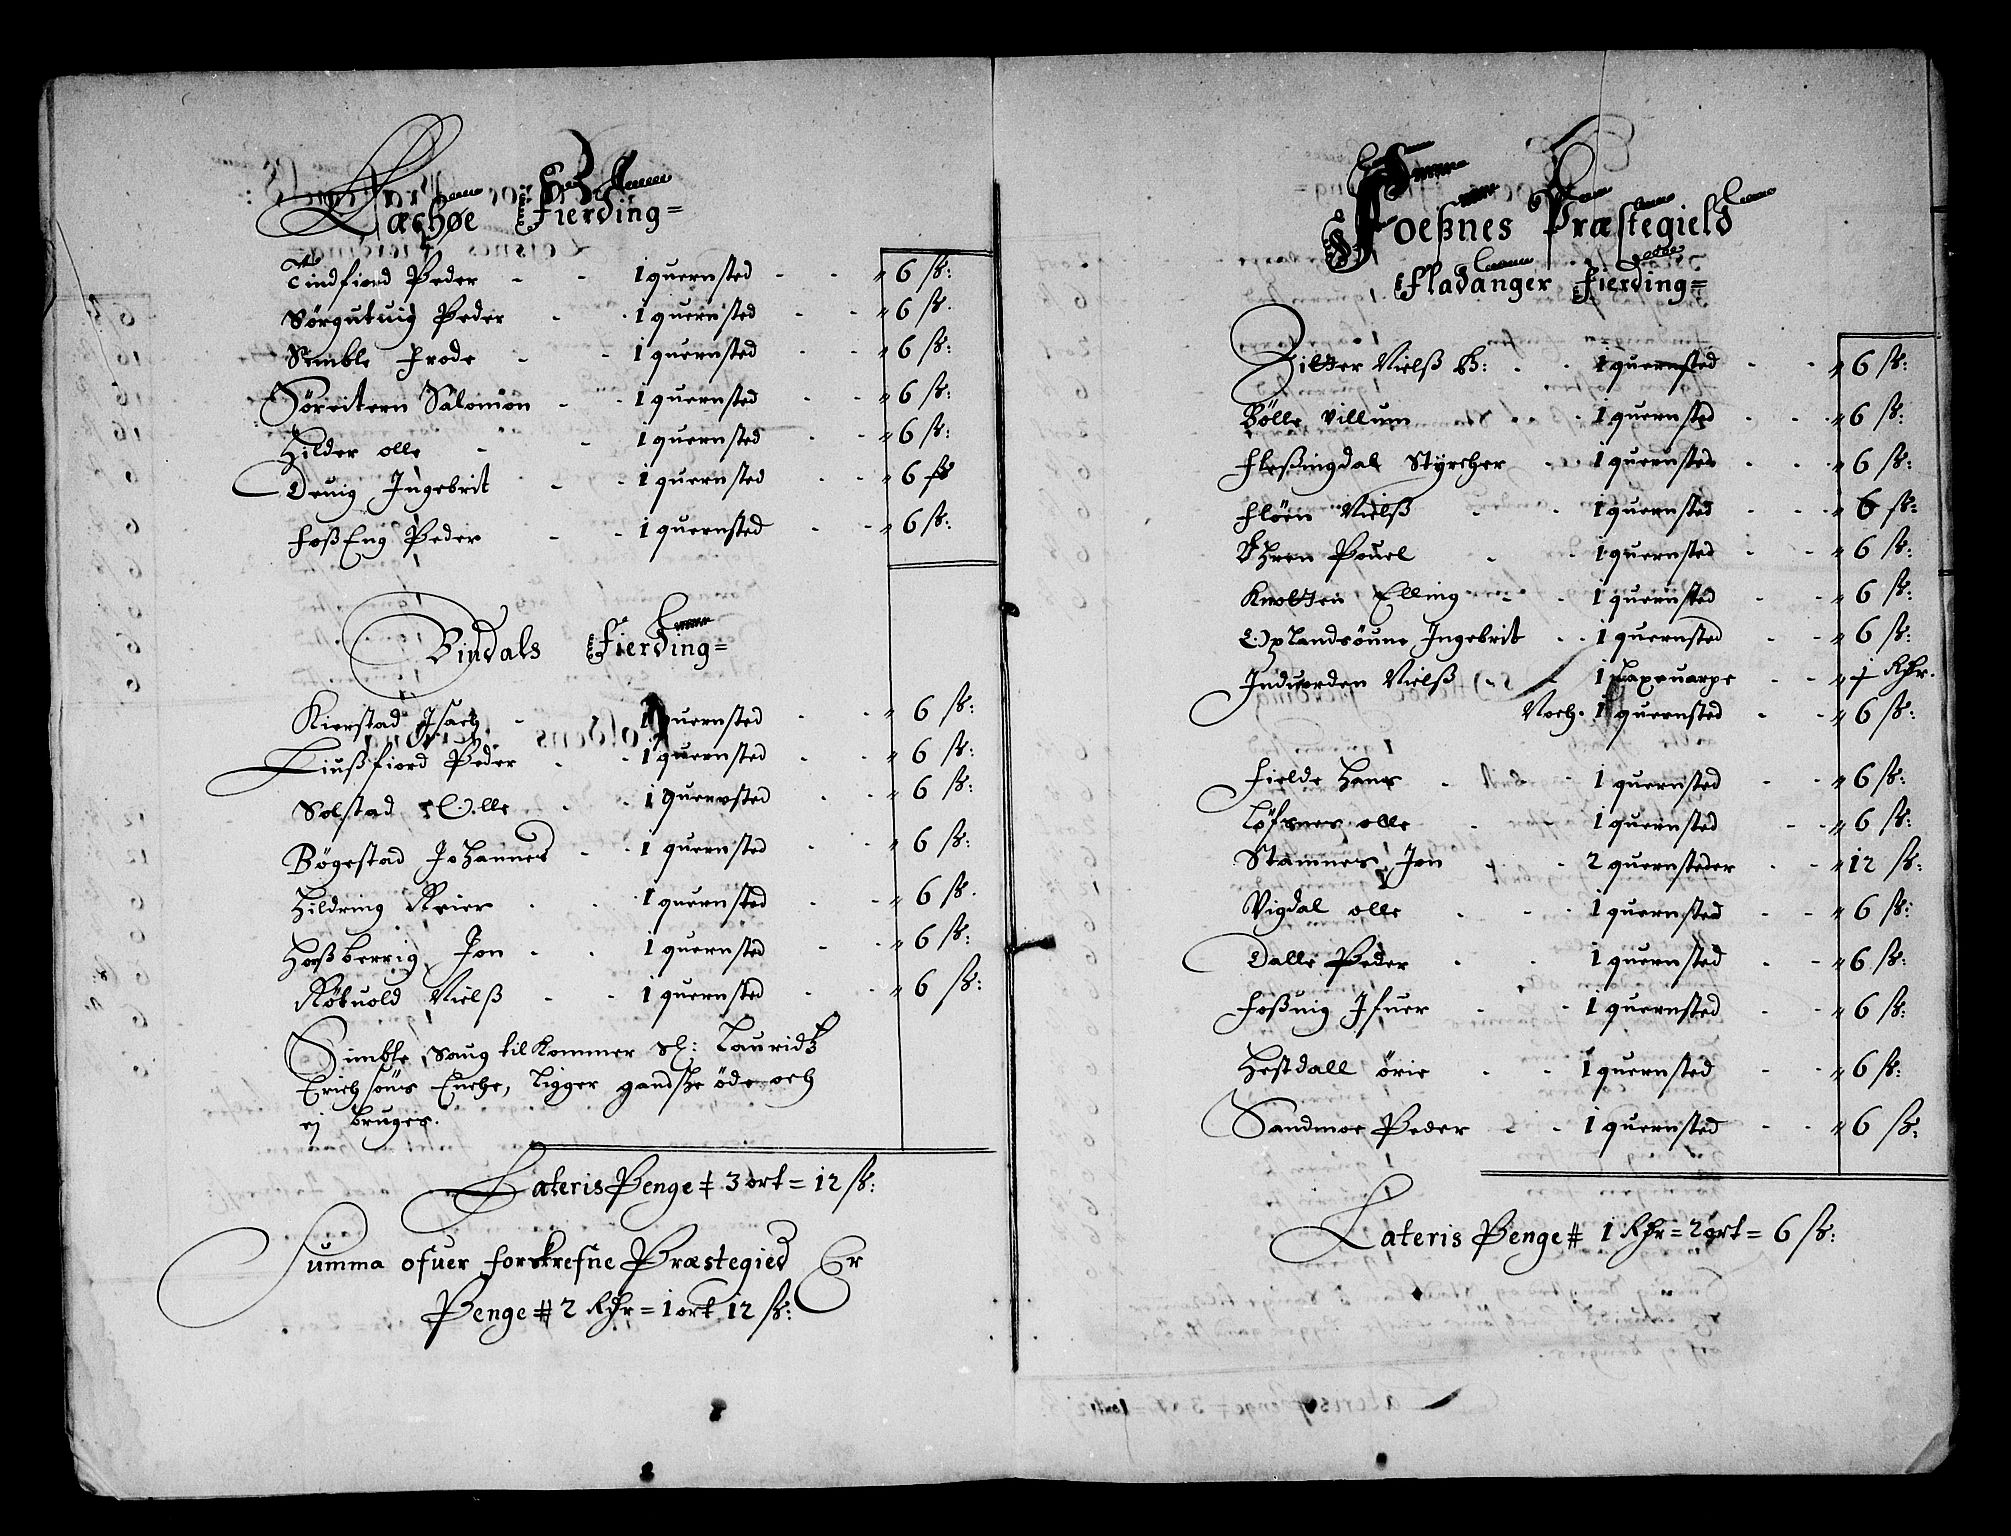 Læchøe Fierding=
Tindfiord Peder - - 1 quernsted - - " 6 ß:
Sørgutuig Peder - - 1 quernsted - - " 6 ß.
Simble Frode - - 1 quernsted - - " 6 ß:
Søreitern Salomon - - 1 quernsted - - " 6 ß:
Hilder olle - - 1 quernsted - - " 6 ß:
Deuig Ingebrit - - 1 quernsted - - " 6 ß
Foß Eng Peder - - 1 quernsted - - " 6 ß:
Bindals Fierding=
Kierstad Isach - 1 quernsted - - " 6 ß:
Liußfiord Peder - - 1 quernsted - - " 6 ß:
Solstad Olle - - 1 quernsted - - " 6 ß:
Bøgestad Johannes - - 1 quernsted - - " 6 ß:
Hildring Reier - - 1 quernsted - - " 6 ß.
Horßberrig Jon - - 1 quernsted - - " 6 ß:
Røkuold Nielß - - 1 quernsted - - " 6 ß:
Simble Saug tilkommer Sl: Lauridtz
Erichsøns Enche, ligger gandske øde och
ej bruges.
Lateris Penge ‡ 3 ort = 12 ß:
Summa ofuer forskrefne Præstegied Er
Penge # 2 Rdr = 1 ort 12 ß:
Foeßnes Præstegield
Fladanger Fierding=
Zitter Nielß B: - - 1 quernsted - - " 6 ß:
Bølle Villum - - 1 quernsted - - " 6 ß:
Fleßingdal Styrcher - - 1 quernsted - - " 6 ß:
Fløen Nielß - - 1 quernsted - - " 6 ß=
Ehren Pouel - - 1 quernsted - - " 6 ß:
Knotten Elling - - 1 quernsted - - " 6 ß:
Oplandsøune Ingebrit - - 1 quernsted - - " 6 ß:
Induorden Nielß - - 1 Laxeuarpe - - " 1 Rdr.
Noch. 1 quernsted - - " 6 ß:
Fielde Hans - - 1 quernsted - - " 6 ß:
Løfsnes olle - - 1 quernsted - - " 6 ß:
Stamnes Jon - - 2 quernsteder - - " 12 ß:
Vigdal olle - - 1 quernsted - - " 6 ß:
Dalle Peder - - 1 quernsted - - " 6 ß:
Foßuig Ifuer - - 1 quernsted - - " 6 ß:
Hestdall ørie - - 1 quernsted - - " 6 ß:
Sandmoe Peder - - 1 quernsted - - " 6 ß:
Lateris Penge # 1 Rdr = 2 ort = 6 ß: